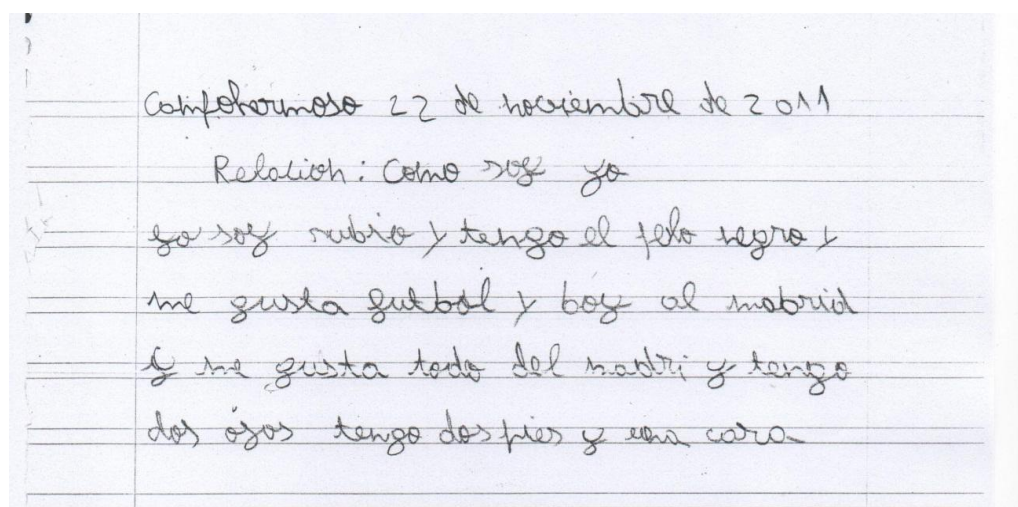 Campohermoso 22 de noviembre de 2011
Relation: Como soy yo
yo soy rubio y tengo el pelo negro y
me gusta gutbol y boy al mabrid
y me gusta todo del madri y tengo
dos ojos tengo dos pies y una cara